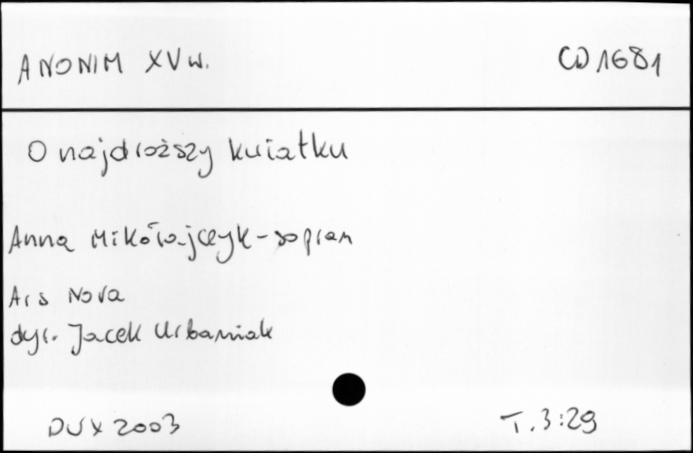 ANONIM XV w. CD 1681
O najdroższy kwiatku
Anna Mikołajczyk - sopran
Ars Nova
dyr. Jacek Urbaniak
DUX 2003 T. 3:29